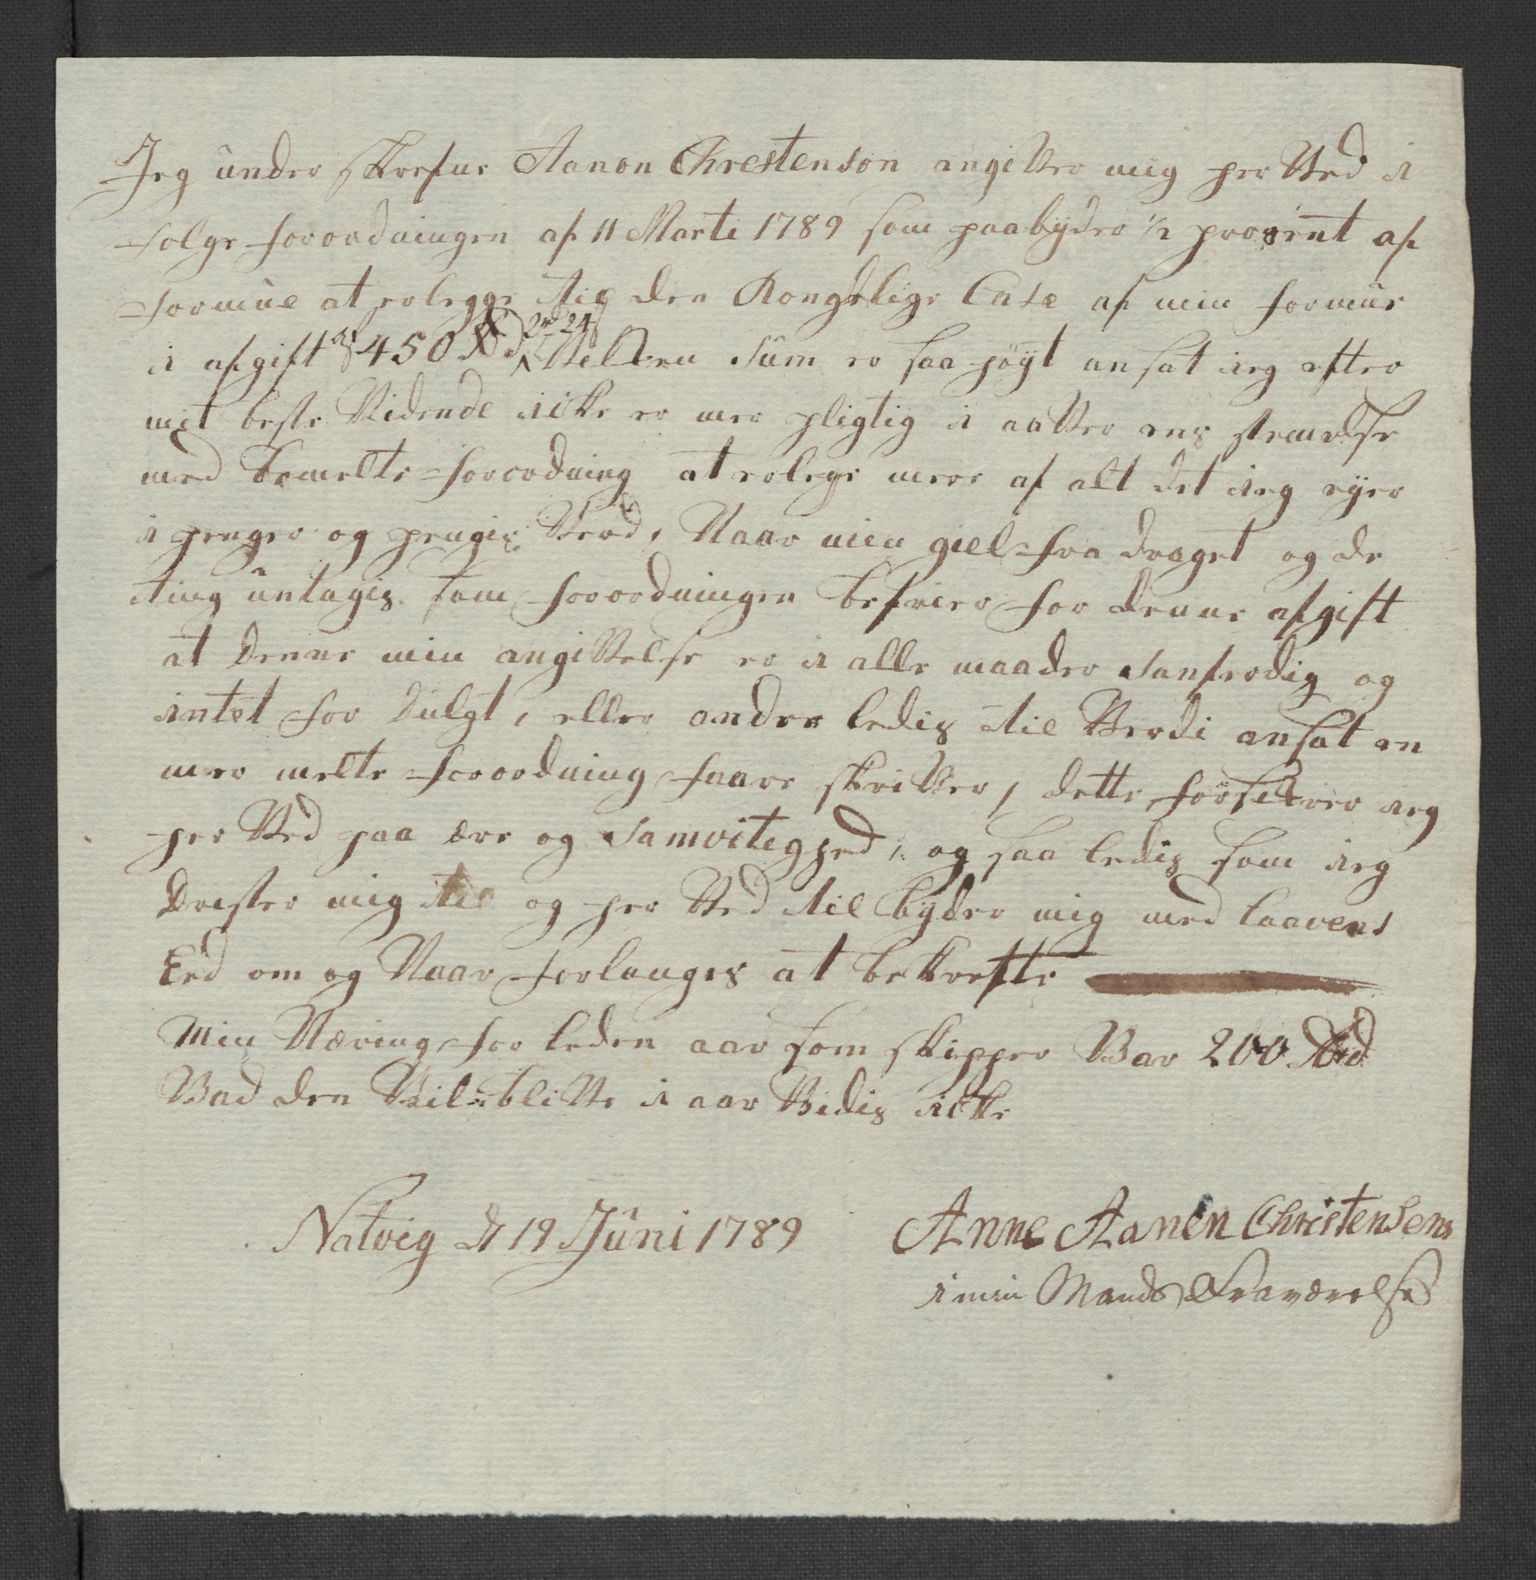 Jeg under skrefne Aanon Chrestenson angitter mig her Ved i
følge forordningen af 11 Marti 1789 som paabyder 1/2 prosent af
formue at erlegge til den Kongelige Case af min formue
i afgift af 450 Rd 2 rd 24 s Velken Sum er saa høyt ansat ieg efter
mit beste Vidende icke er mer pligtig i aatter ens stemelse
med bemelte forordning at erlege mere af alt det ieg eyer
i penger og pengis Verd, Naar min giel fra draget og de
ting untagis som forordningen befrier for denne afgift
at Denne min angittelse er i alle maader Sanferdig og
intet for Dulgt, ellerander ledis til Verdi ansat en
mer melte forordning faare skritter, dette forsikrer ieg
her Ved paa ære og Samvitighed, og saa ledis som ieg
Drester mig til og her Ved til byder mig med laavens
Eed om og Naar forlanges at bekrefte
Min Næring for leden aar som skipper Var 200 Rd
Vad den Vil blitte i aar Vidis icke
Natvig d 19 Juni 1789
Anne Aanen Christensens
i min Mands Fraværelse